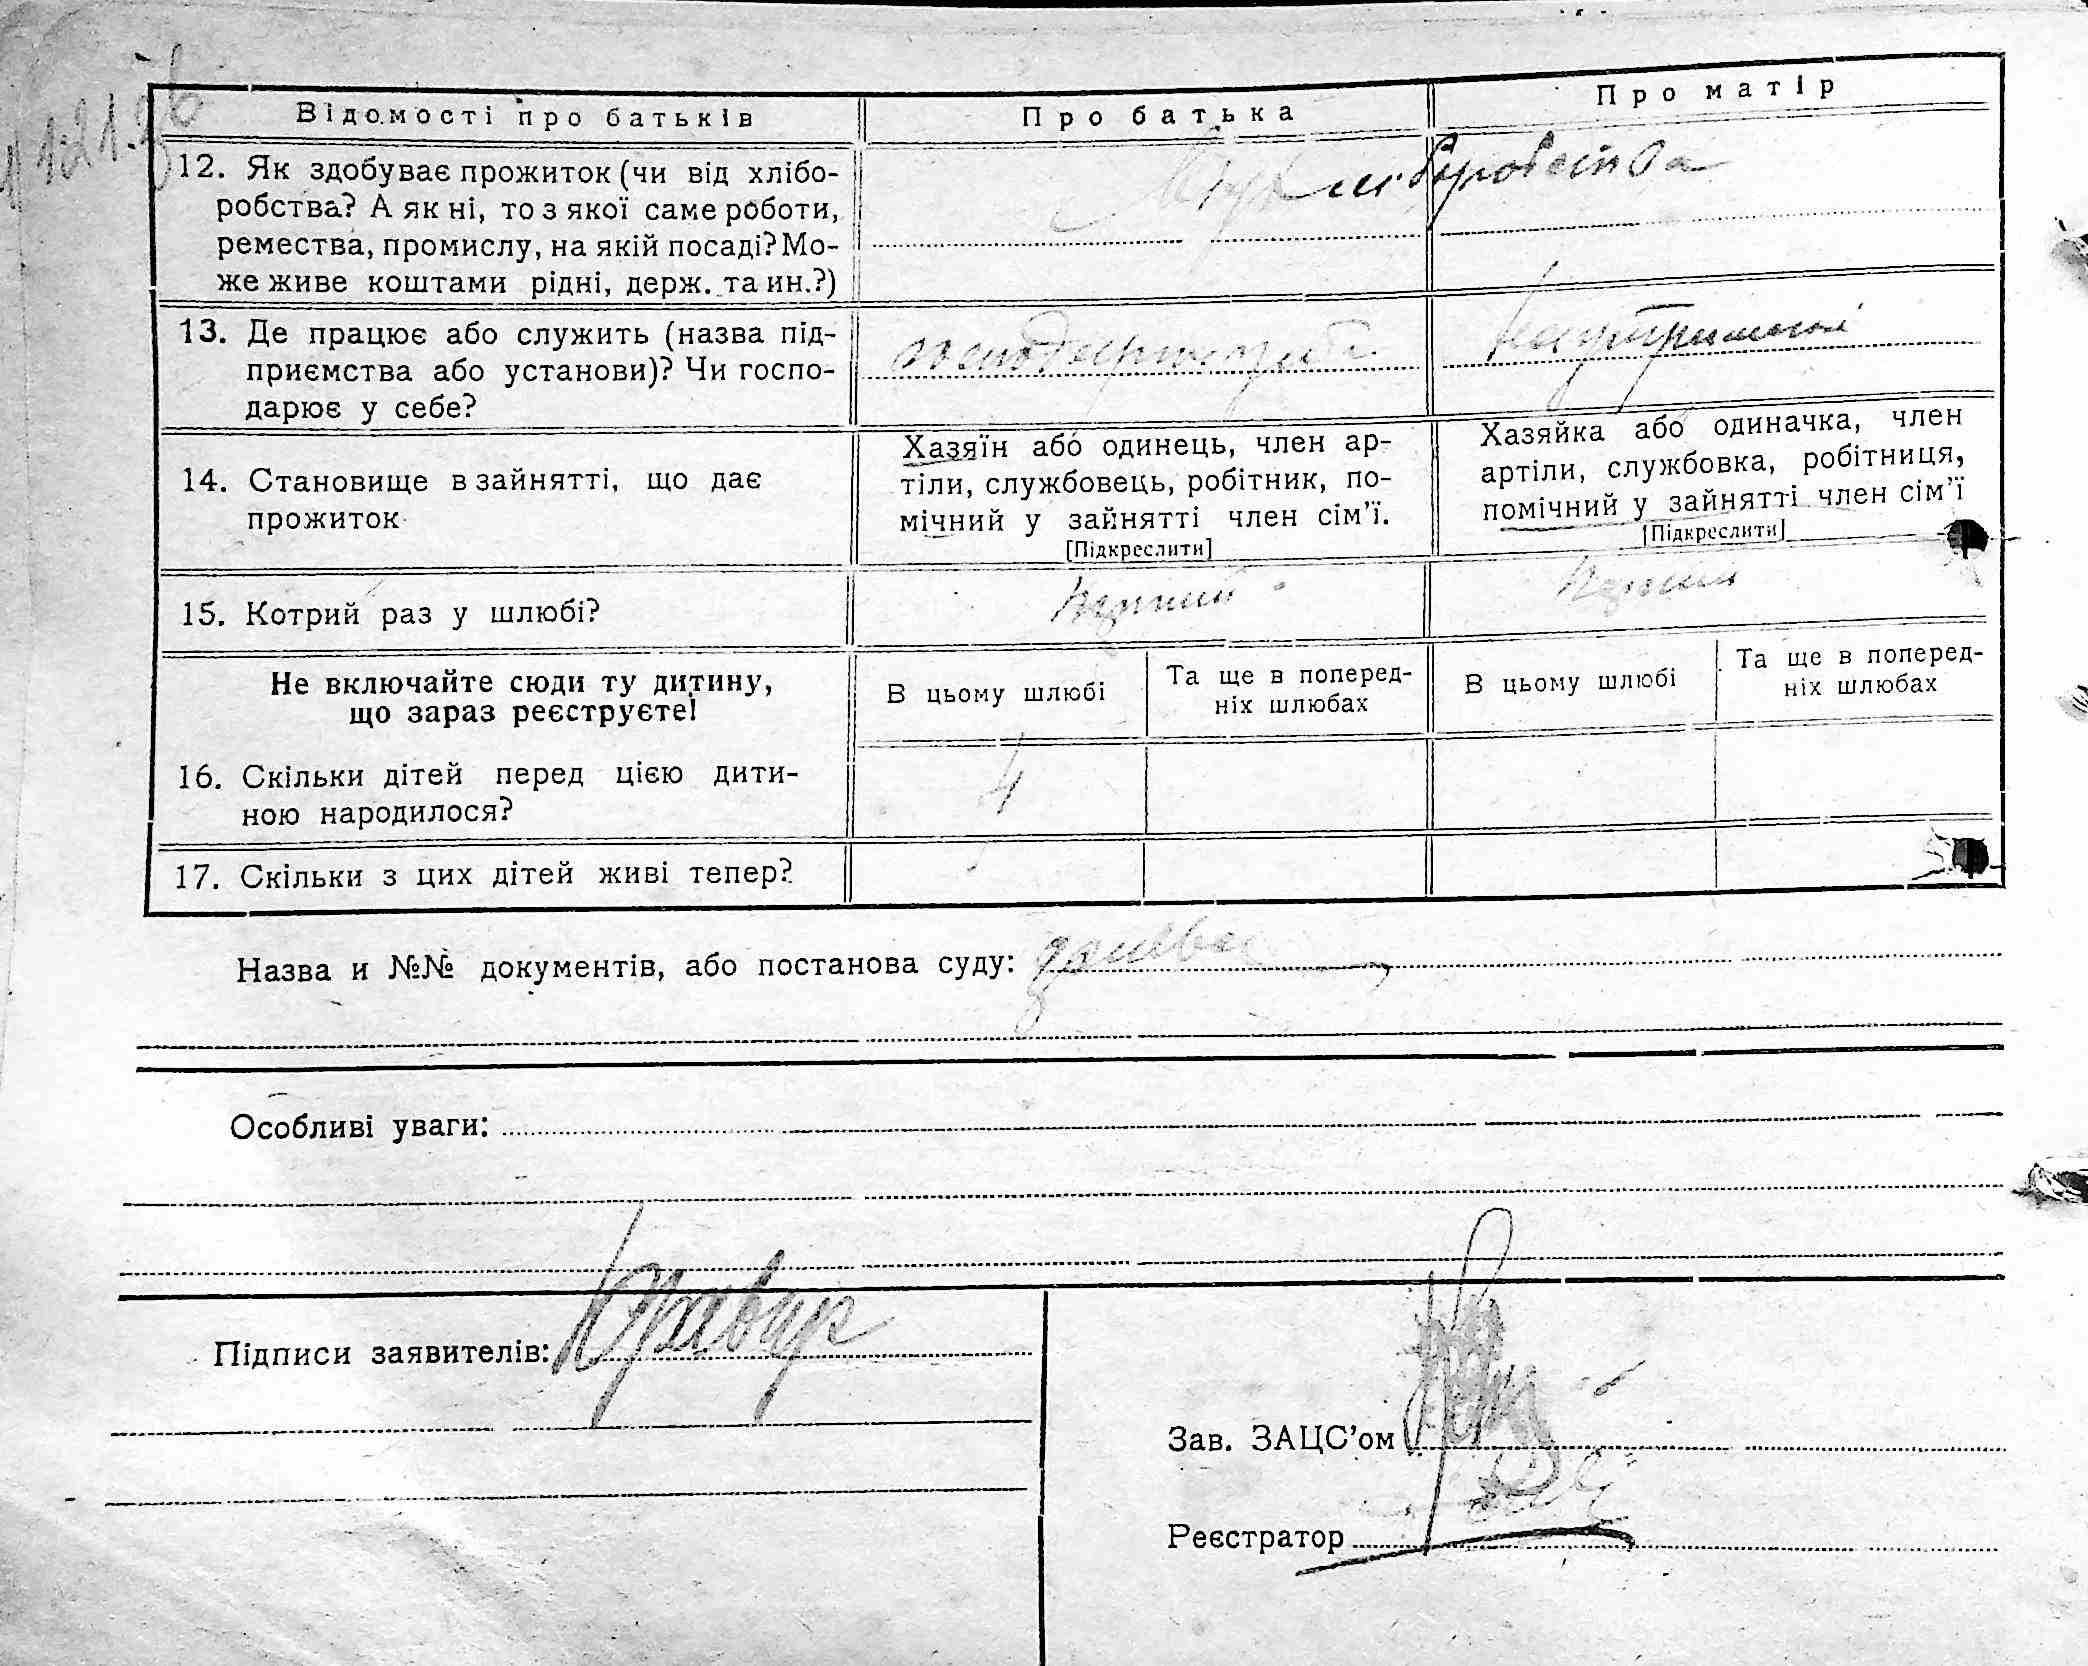 Відомості про батьків
Про батька
Про матір
12. Як здобуває прожиток (чи від хлібо-
робства? А як ні, то з якої саме роботи,
ремества, промислу, на якій посаді? Мо-
же живе коштами рідні, держ. та ин.?)
13. Де працює або служить (назва під-
приємства або установи)? Чи госпо-
дарює у себе?
на утриманні
14. Становище в зайнятті, що дає
прожиток
Хазяїн або одинець, член ар-
тіли, службовець, робітник, по-
мічний у зайнятті член сім'ї.
[Підкреслити]
Хазяйка або одиначка, член
артіли, службовка, робітниця,
помічний у зайнятті член сім'ї
[Підкреслити]
15. Котрий раз у шлюбі?
перший
перший
Не включайте сюди ту дитину,
що зараз реєструєте!
В цьому шлюбі
Та ще в поперед-
ніх шлюбах
В цьому шлюбі
Та ще в поперед-
ніх шлюбах
16. Скільки дітей перед цією дити-
ною народилося?
4
17. Скільки з цих дітей живі тепер?
Назва и №№ документів, або постанова суду:
Особливі уваги:
Підписи заявителів:
Зав. ЗАЦС'ом
Реєстратор